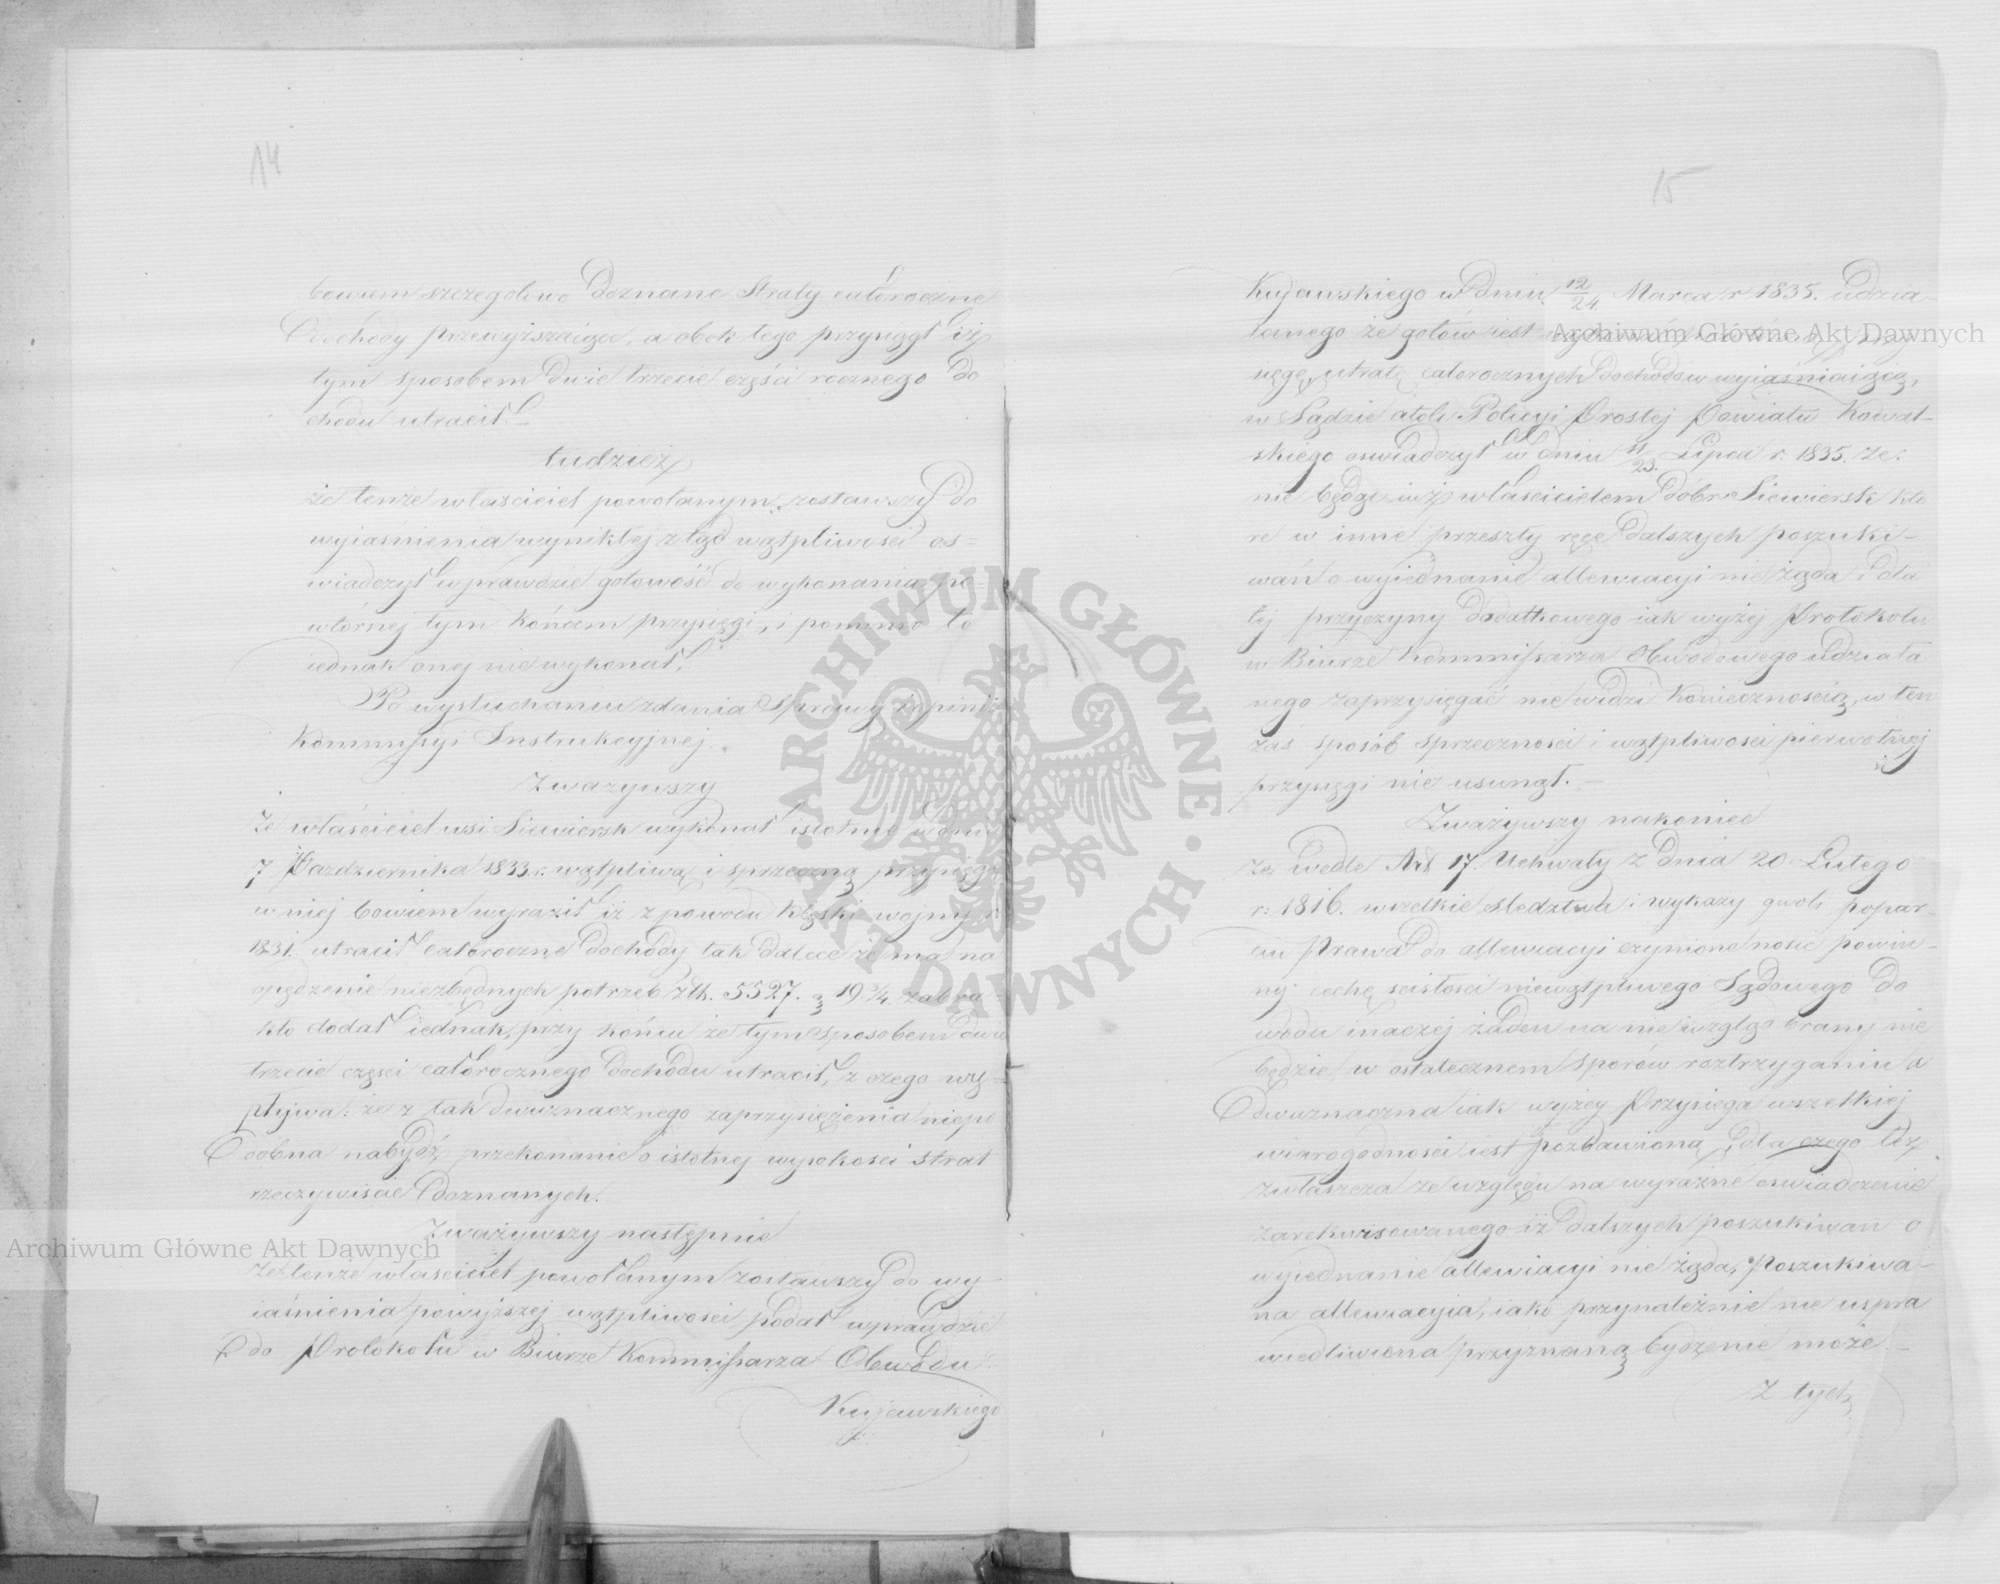 14
bowiem szczegolowo doznane straty całoroczne
Dochody przewyższaiące, a obok tego przysiągł iż
tym sposobem dwie trzecie części rocznego do
chodu utracił.
tudzież
że tenże właściciel powołanym zostawszy do
wyiaśnienia wynikłej ztąd wątpliwości os=
wiadczył wprawdzie gotowość do wykonania po-
wtórnej tym końcem przysięgi, i pomimo to
iednak onej nie wykonał.
Po wysłuchaniu zdania Sprawy i opinii
Kommissyi Instrukcyjnej.
Zważywszy
że właściciel wsi Siewiersk wykonał istotnie w dniu
7 Pazdziernika 1833 r. wątpliwą i sprzeczną przysięgę
w niej bowiem wyraził iż z powodu klęski wojny r.
1831. utracił całoroczne dochody tak dalece że ma na
opędzenie niezbędnych potrzeb Złł. 5527. g 19 3/4 zabra-
kło dodał iednak przy końcu że tym sposobem dwie
trzecie części całorocznego dochodu utracił, z czego wy=
pływa: że z tak dwuznacznego zaprzysiężenia niepo
dobna nabydź przekonanie o istotnej wysokości strat
rzeczywiscie doznanych.
Zważywszy następnie
że tenze właściciel powołanym zostawszy do wy-
iaśnienia powyższej wątpliwości podał wprawdzie
do Protokołu w Biurze Kommissarza Obwodu
Kujawskiego
15
Kujawskiego w dniu 12/24 Marca r 1835. udzia-
łanego że gotów iest
sięgę, utratę całorocznych dochodów wyiaśniaiącą,
w Sądzie atoli Policyi Prostej Powiatu Kowal-
skiego oswiadczył w dniu 11/23. Lipca r. 1835. że:
nie będąc iuż właścicielem dóbr Siewiersk któ
re w inne przeszły ręce dalszych poszuki-
wań o wyiednanie allewiacyi nie żąda i dla
tej przyczyny dodatkowego iak wyżej Protokołu
w Biurze Kommissarza Obwodowego udziała
nego zaprzysięgać nie widzi koniecznością, w ten
zaś sposób sprzeczności i wątpliwości pierwotnej
przysięgi nie usunął.-
Zważywszy nakoniec
że wedle Art 17. Uchwały z dnia 20 Lutego
r: 1816. wszelkie sledztwa i wykazy gwoli popar-
ciu Prawa do allewiacyi czynione nosić powin-
ny cechę scisłości niewątpliwego Sądowego do
wodu inaczej żaden na nie wzgląd brany nie
będzie w ostatecznem sporów roztrzyganiu a
dwuznaczna iak wyżey Przysięga wszelkiej
wiarogodności iest pozbawioną, dla czego też
zwłaszcza ze względu na wyraźne oswiadczenie
zarekwirowanego iż dalszych poszukiwań o
wyiednanie allewiacyi nie żąda, Poszukiwa-
na allewiacyia, iako przynależnie nie uspra
wiedliwiona przyznaną bydź nie może.-
Z tych
ARCHIWUM GŁÓWNE AKT DAWNYCH
Archiwum Główne Akt Dawnych
Archiwum Główne Akt Dawnych